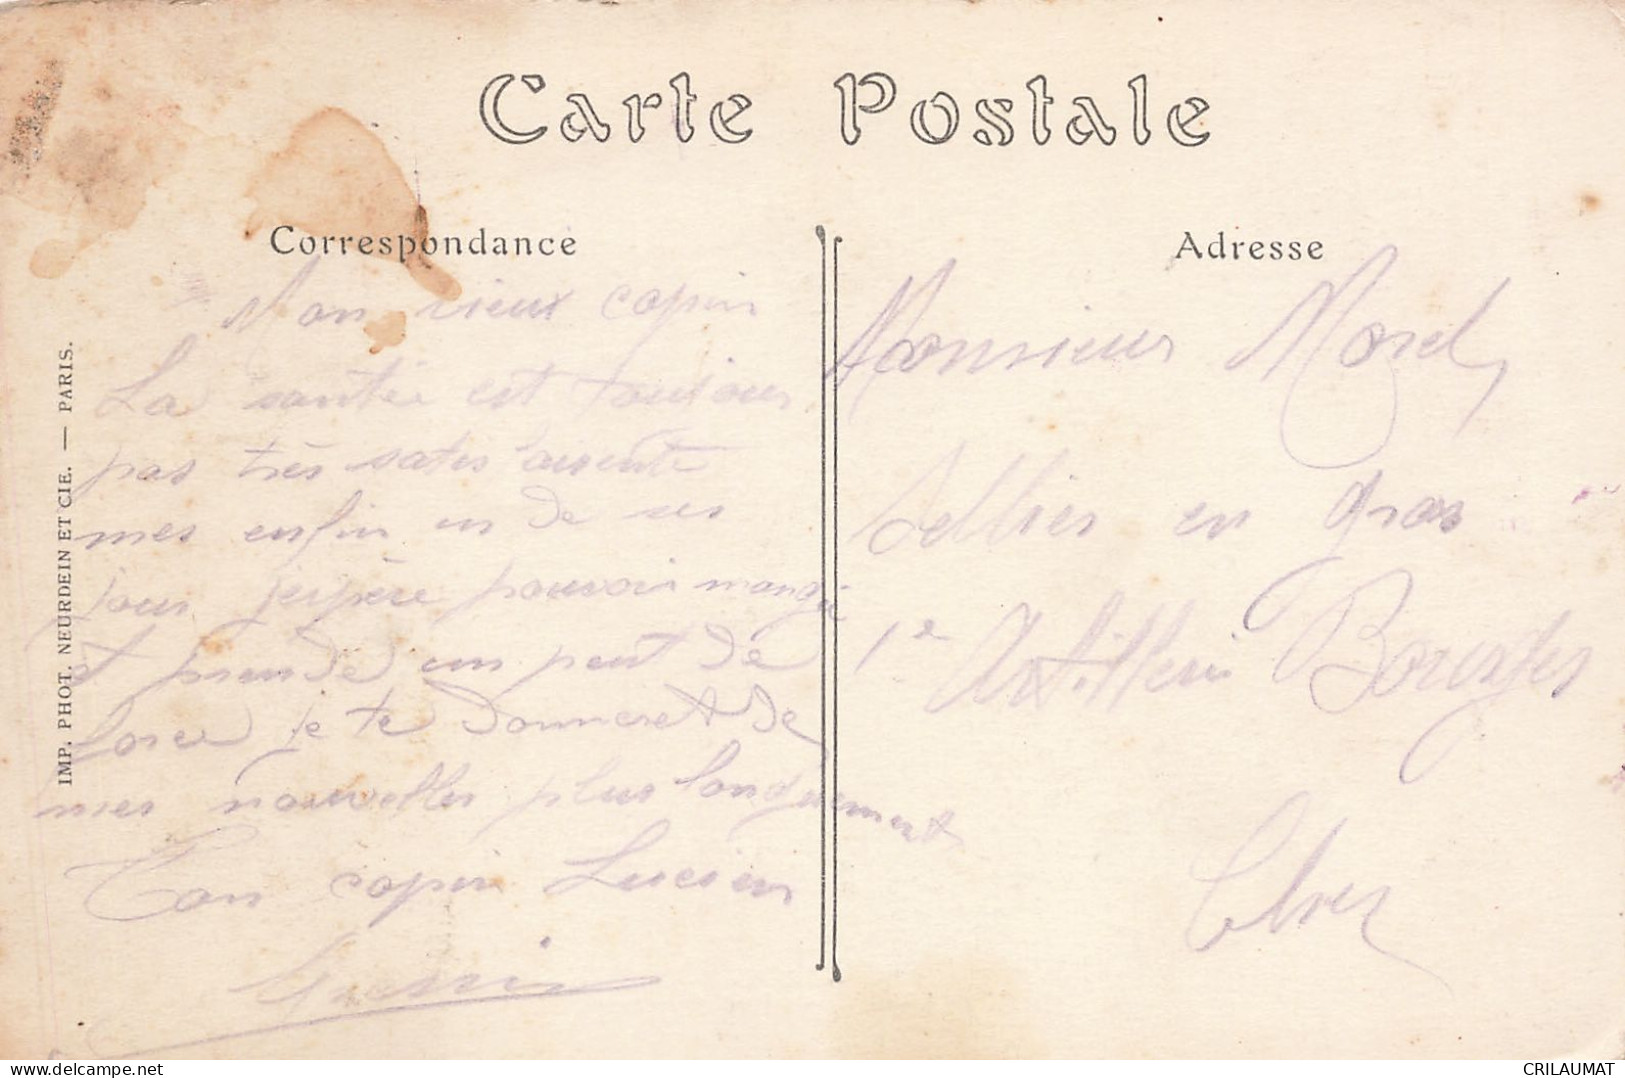 Carte Postale
Correspondance
Mon vieux copin
La santée est toujours
pas très satisfaisente
mes enfin un de ses
jour jespère pouvoir mangé
et prende un peut de
force je te donneret de
mes nouvelles plus longuement
Ton copin Lucien
Adresse
Monsieur Morel,
Sellier en gros
1e Artillerie Bourges
Cher
IMP. PHOT. NEURDEIN ET CIE. — PARIS.
delcampe.net
CRILAUMAT